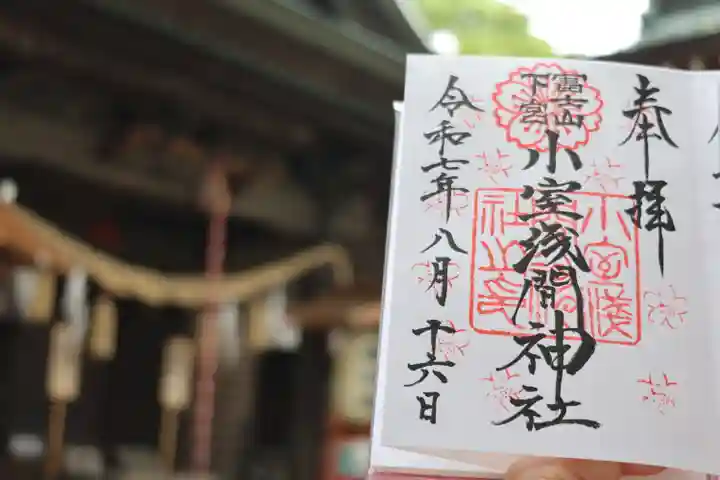 奉拝
富士山
下宮
小室浅間神社
小室浅
社之印
令和七年八月十六日